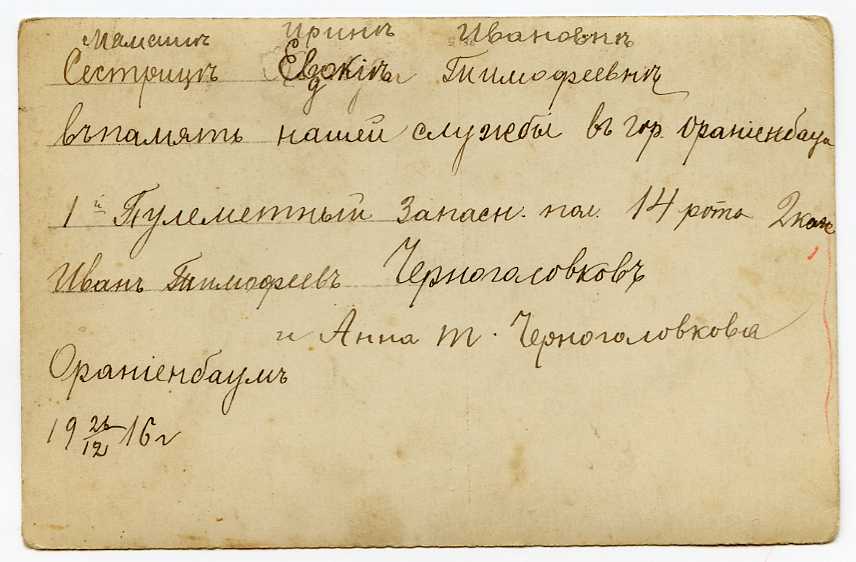 Мамашѣ Иринѣ Ивановнѣ
Сестрицѣ Евдокіѣ Тимофеевнѣ
въ память нашей службы въ гор. Ораніенбаум
1й Пулеметный запасн. пол. 14 рота
Иванъ Тимофеевъ Черноголовковъ
и Анна Т. Черноголовкова
Ораніенбаумъ
19 26/12 16 г